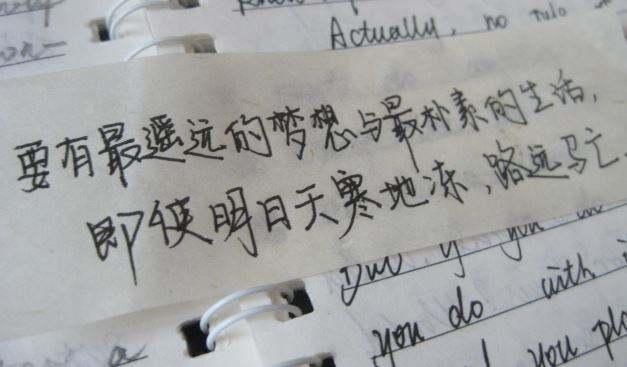 Actually, no rule
要有最遥远的梦想与最朴素的生活,
即使明日天寒地冻,路远马亡.
But if you
you do with
you
a